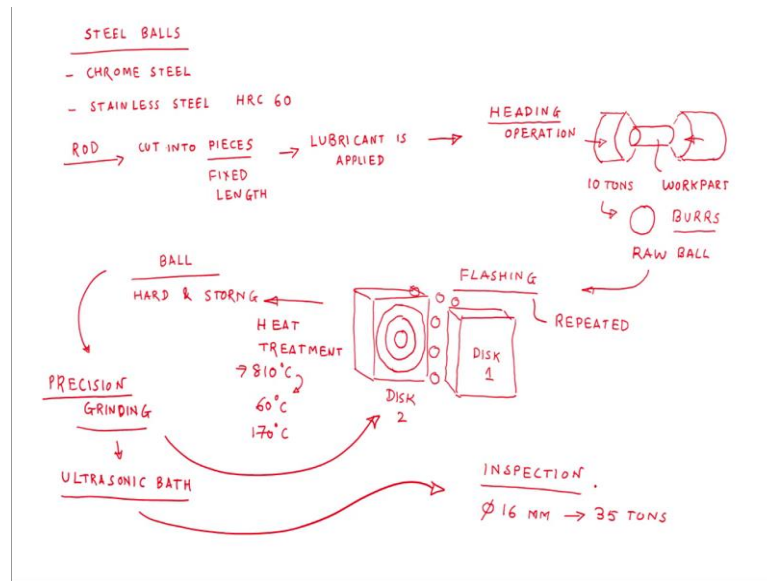 STEEL BALLS
- CHROME STEEL
- STAINLESS STEEL HRC 60
ROD
CUT INTO PIECES
FIXED
LENGTH
LUBRICANT IS
APPLIED
HEADING
OPERATION
10 TONS
WORKPART
BURRS
RAW BALL
FLASHING
REPEATED
DISK
1
DISK
2
HEAT
TREATMENT
→ 810°C
60°C
170°C
BALL
HARD & STORNG
PRECISION
GRINDING
ULTRASONIC BATH
INSPECTION.
Ø 16 MM → 35 TONS